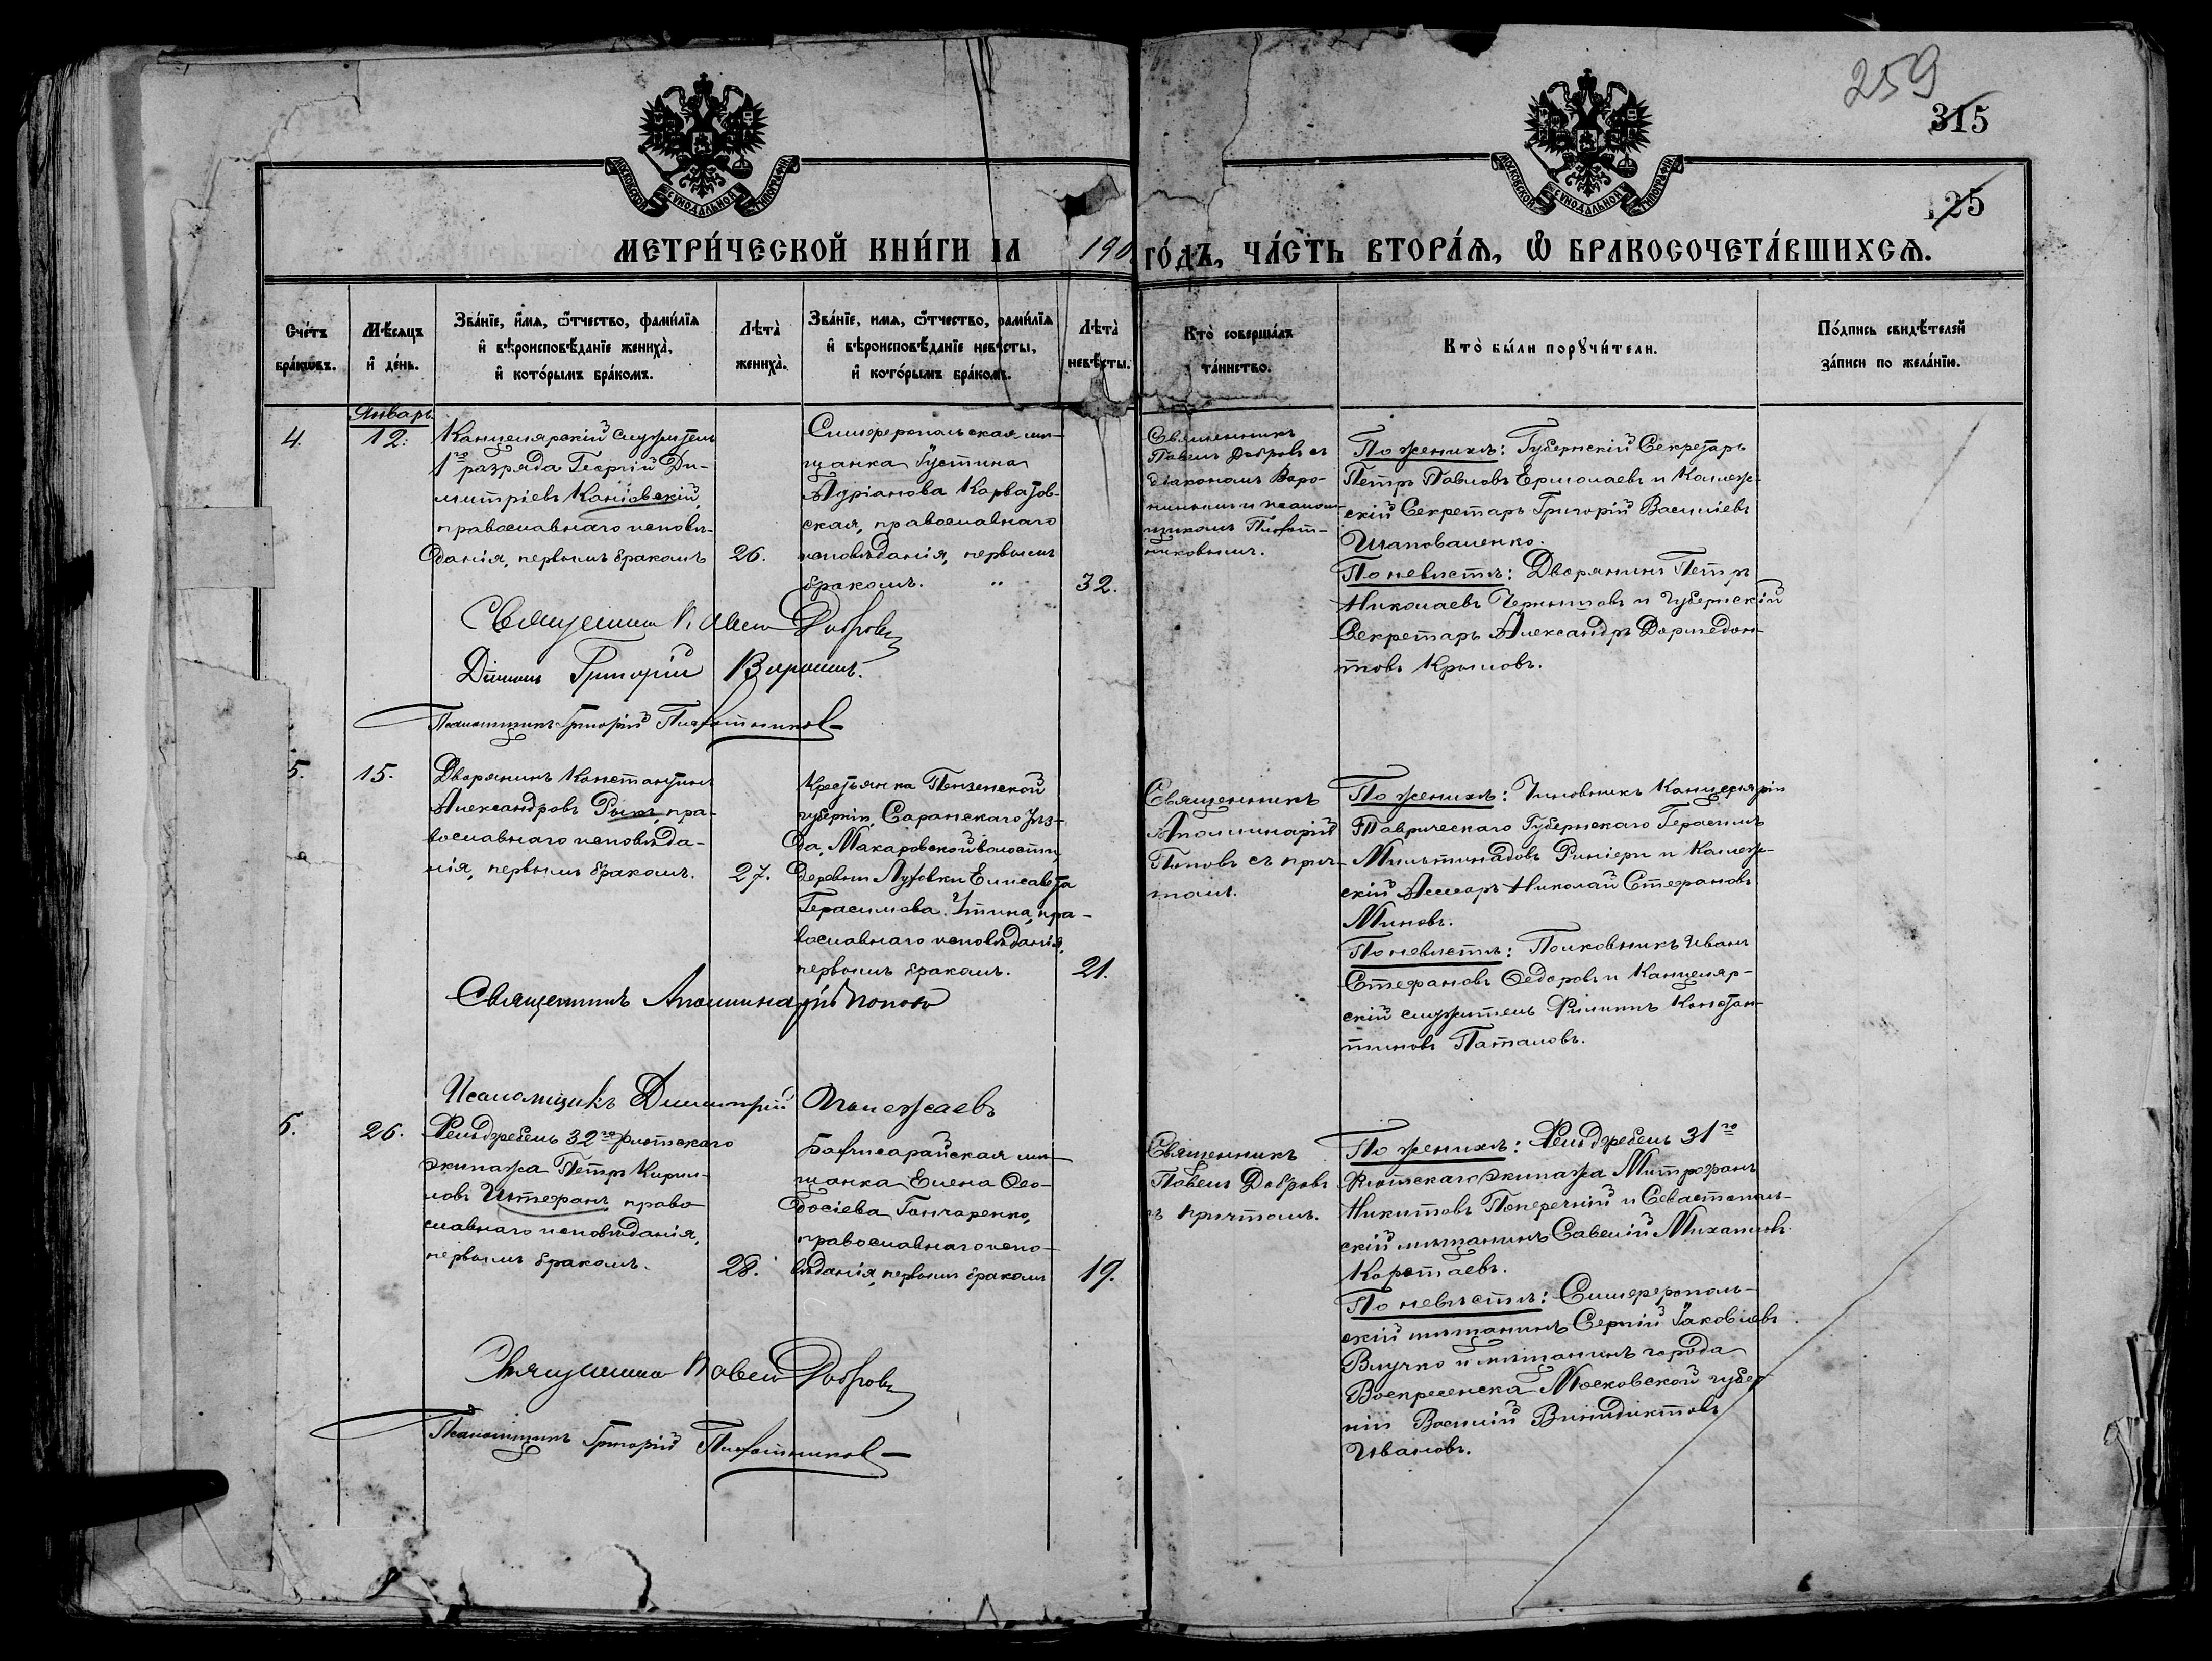 259
315
125
МОСКОВСКОЙ СУНОДАЛЬНОЙ ТИПОГРАФІИ
МОСКОВСКОЙ СУНОДАЛЬНОЙ ТИПОГРАФІИ
МЕТРИ́ЧЕСКОЙ КНИ́ГИ
190
ГО́ДЪ, ЧА́СТЬ ВТОРА́Ѧ, Ѽ БРАКОСОЧЕТА́ВШИХСѦ.
Сче́тъ
бра́кѡвъ.
Мѣ́сяцъ
и҆ де́нь.
Зва́нїе, и҆́мя, ѻ҆́тчество, фами́лїя
и҆ вѣроисповѣ́данїе жениха̀,
и҆ кото́рымъ бра́комъ.
Лѣта̀
жениха̀.
Зва́нїе, имя, ѻ҆́тчество, фами́лїя
и҆ вѣроисповѣ́данїе невѣ́сты,
и҆ кото́рымъ бра́комъ.
Лѣта̀
невѣ́сты.
Кто̀ соверша́лъ
та́инство.
Кто̀ бы́ли порꙋчи́тели.
По́дпись свидѣ́телей
за́писи по жела́нїю.
Январь.
4.
12.
Канцелярскій служитель
1го разряда Георгій Ди-
митріевъ Каніовскій,
православнаго исповѣ-
данія, первымъ бракомъ
26.
Симферопольская мѣ-
щанка Іустина
Адріанова
ская, православнаго
исповѣданія, первымъ
бракомъ. "
32.
Священникъ
Павелъ Добровъ съ
діакономъ Воро-
нинымъ и псалом-
щикомъ Плот-
никовымъ.
По женихѣ: Губернскій Секретарь
Петръ Павловъ Ермолаевъ и Коллеж-
скій Секретарь Григорій Василіевъ
Шаповаленко.
По невѣстѣ: Дворянинъ Петръ
Николаевъ Чернышовъ и Губернскій
Секретарь Александръ Дормедон-
товъ Крыловъ.
Священникъ Павелъ Добровъ
Діаконъ Григорій Воронинъ.
Псаломщикъ Григорій Плотниковъ
5.
15.
Дворянинъ Константинъ
Александровъ пра-
вославнаго исповѣда-
нія, первымъ бракомъ.
27.
Крестьянка Пензенской
губерніи, Саранскаго уѣз-
да, Макаровской волости,
деревни Елисавета
Герасимова пра-
вославнаго исповѣданія,
первымъ бракомъ.
21.
Священникъ
Аполлинарій
Поповъ съ прич-
томъ.
По женихѣ: Чиновникъ Канцеляріи
Таврическаго Губернскаго Герасимъ
Мильтиадовъ Риніери и Коллеж-
скій Ассесоръ Николай Стефановъ
Миновъ.
По невѣстѣ: Полковникъ Иванъ
Стефановъ Ѳедоровъ и Канцеляр-
скій служитель Филиппъ Констан-
тиновъ Паталовъ.
Священникъ Аполлинарій Поповъ
Псаломщикъ Димитрій Полежаевъ
6.
26.
Фельдфебель 32го флотскаго
экипажа Петръ Кирил-
ловъ Штефанъ, право-
славнаго исповѣданія,
первымъ бракомъ.
28.
Бахчисарайская мѣ-
щанка Елена Ѳео-
досіева Гончаренко,
православнаго испо-
вѣданія, первымъ бракомъ
19.
Священникъ
Павелъ Добровъ
съ причтомъ.
По женихѣ: Фельдфебель 31го
Флотскаго Экипажа Митрофанъ
Никитовъ Поперечній и Севастополь-
скій мѣщанинъ Савелій Михаиловъ
Коротаевъ.
По невѣстѣ: Симферополь-
скій мѣщанинъ Сергій Іаковлевъ
Влучко и мѣщанинъ города
Воскресенска Московской губер-
ніи Василій Винидиктовъ
Ивановъ.
Священникъ Павелъ Добровъ
Псаломщикъ Григорій Плотниковъ